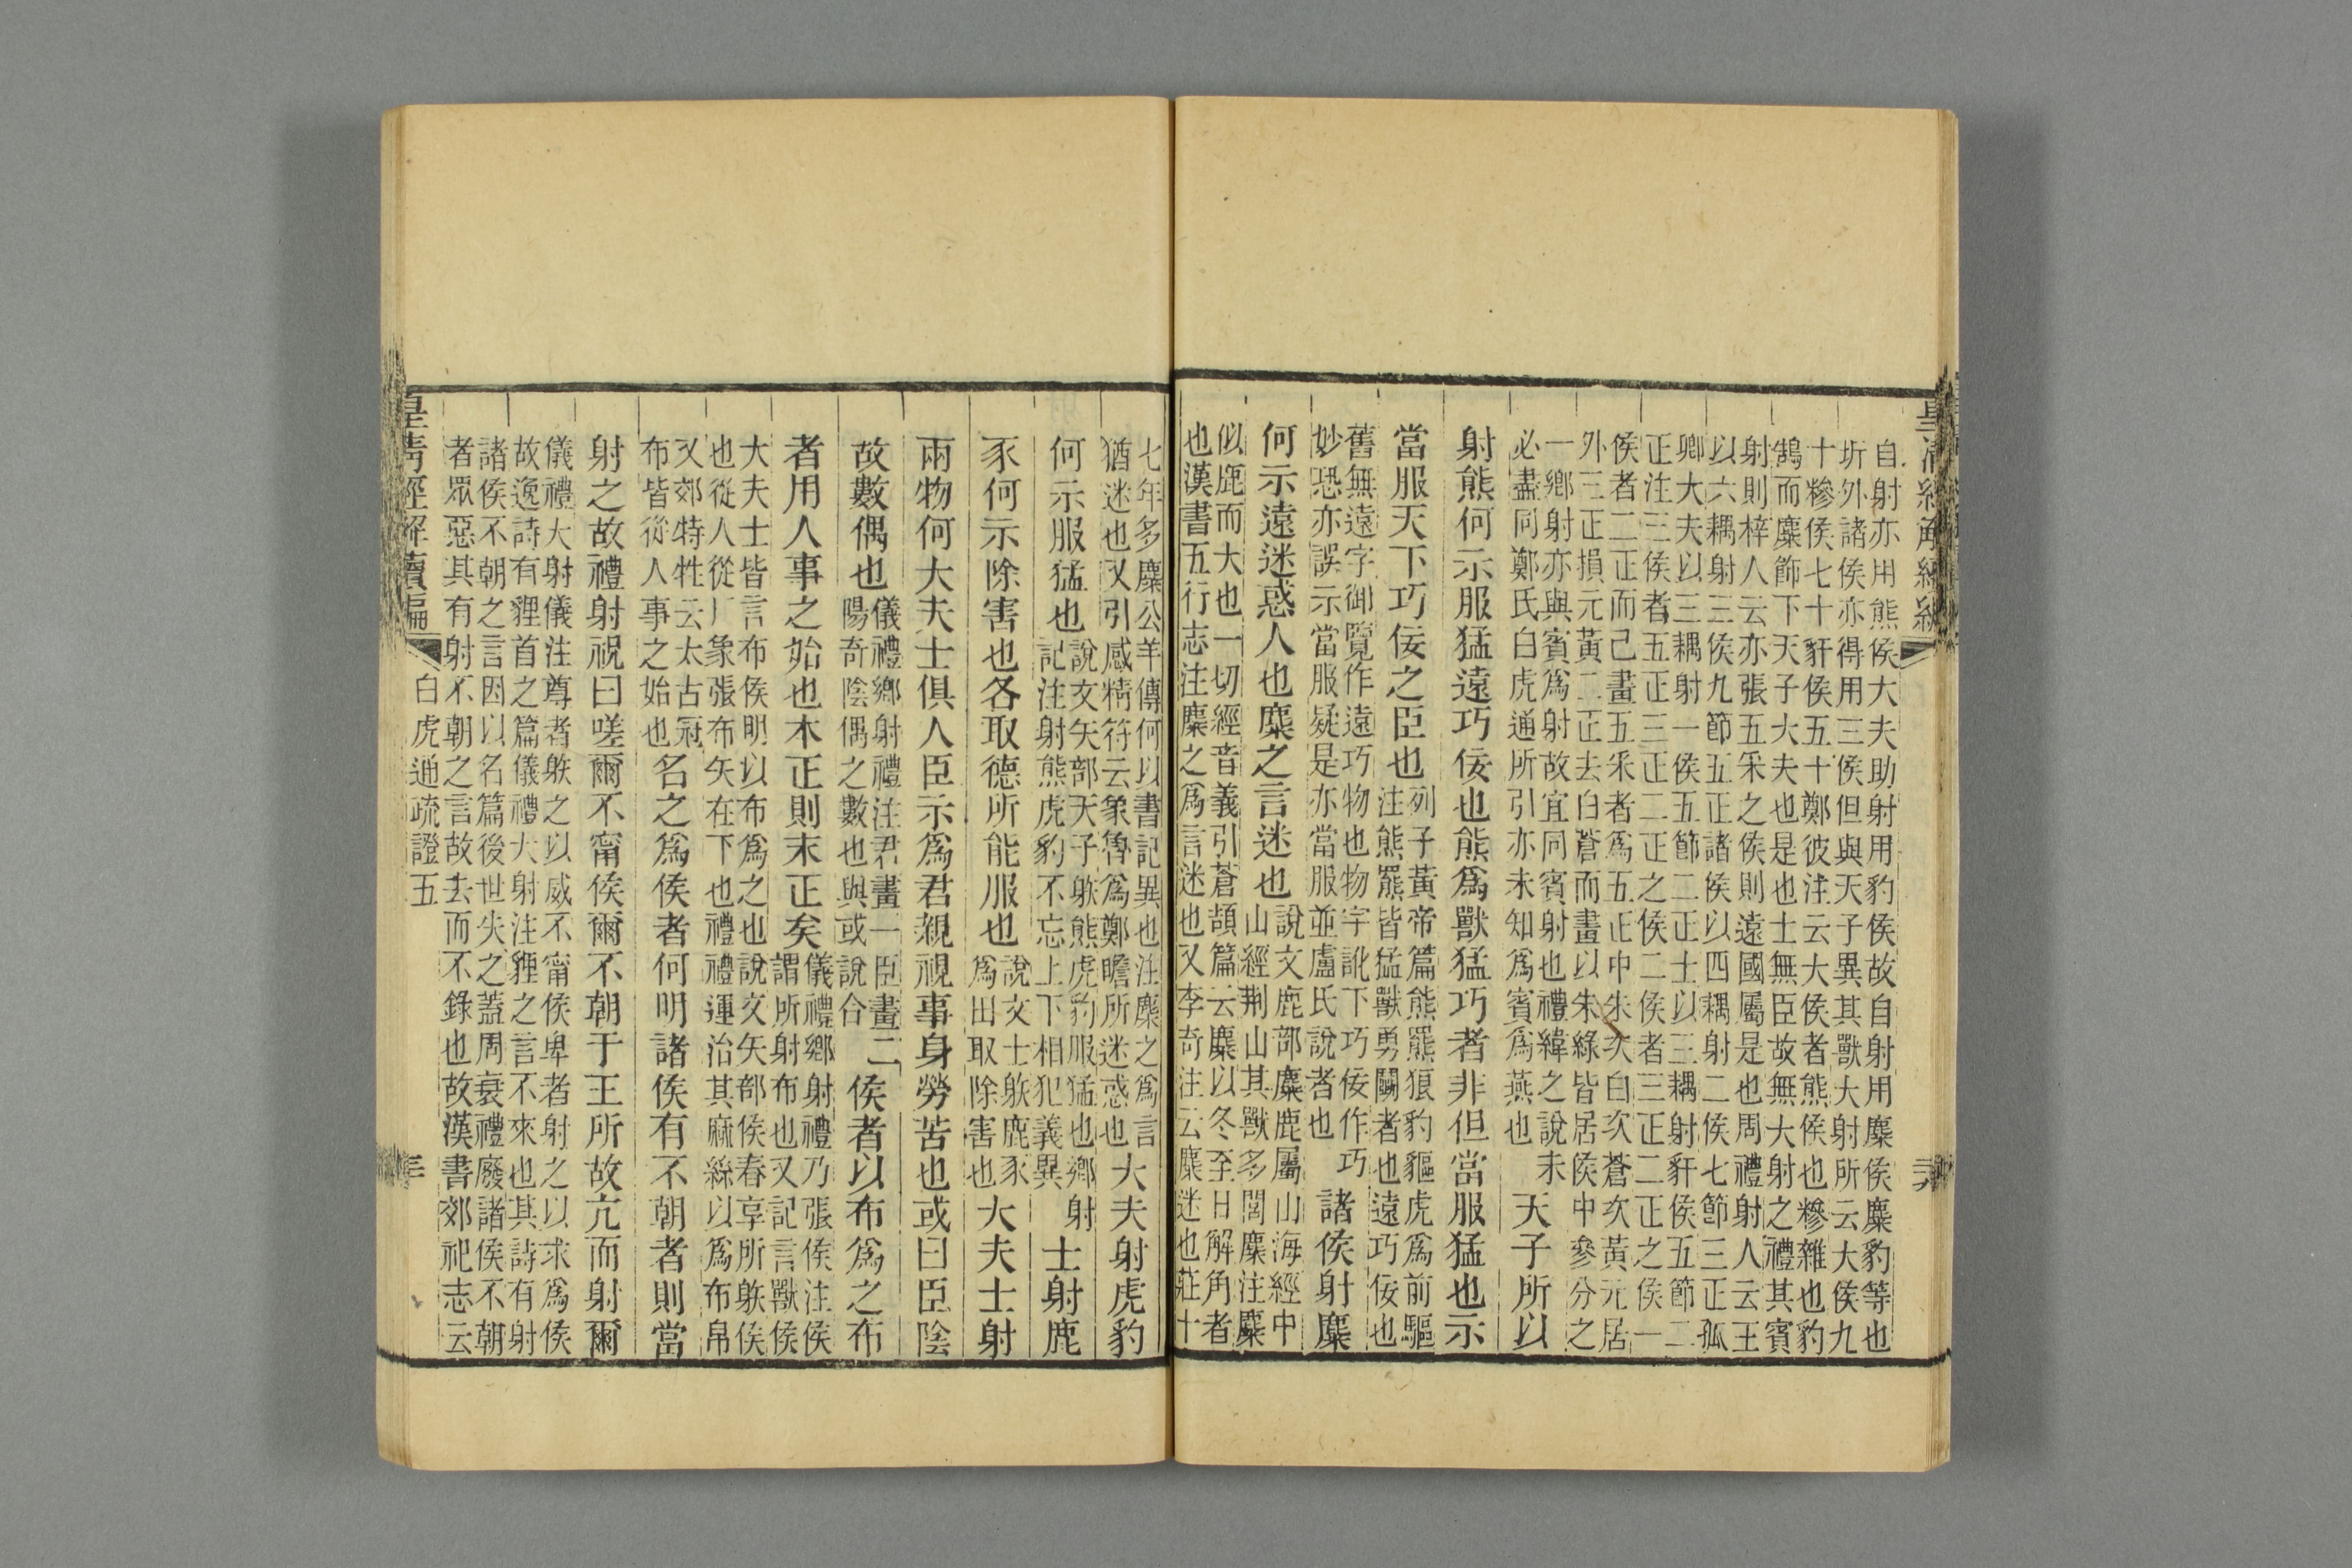 自射亦用熊侯大夫助射用豹侯故自射用麋侯麋豹等也
圻外諸侯亦得用三侯但與天子異其獸大射所云大侯九
十糝侯七十豻侯五十鄭彼注云大侯者熊侯也糝雜也豹
鵠而麋飾下天子大夫也是也士無臣故無大射之禮其賓
射則梓人云亦張五采之侯則遠國屬是也周禮射人云王
以六耦射三侯九節五正諸侯以四耦射二侯七節三正孤
卿大夫以三耦射一侯五節二正士以三耦射豻侯五節二
正注三侯者五正三正二正之侯二侯者三正二正之侯一
侯者二正而己畫五采者為五正中朱次白次蒼次黃元居
外三正損元黃二正去白蒼而畫以朱綠皆居侯中參分之
一鄉射亦與賓為射故宜同賓射也禮緯之說未
必盡同鄭氏白虎通所引亦未知為賓為燕也
天子所以
射熊何示服猛遠巧佞也熊為獸猛巧者非但當服猛也示
當服天下巧佞之臣也
列子黃帝篇熊羆狼豹貙虎為前驅
注熊羆皆猛獸勇鬭者也遠巧佞也
舊無遠字御覽作遠巧物也物字訛下巧佞作巧
妙恐亦誤示當服疑是亦當服並盧氏說者也
諸侯射麋
何示遠迷惑人也麋之言迷也
說文鹿部麋鹿屬山海經中
山經荆山其獸多閭麋注麋
似鹿而大也一切經音義引蒼頡篇云麋以冬至日解角者
也漢書五行志注麋之為言迷也又李奇注云麋迷也莊十
七年多麋公羊傳何以書記異也注麋之為言
猶迷也又引感精符云象魯為鄭瞻所迷惑也
大夫射虎豹
何示服猛也
說文矢部天子躲熊虎豹服猛也鄉射
記注射熊虎豹不忘上下相犯義異
士射鹿
豕何示除害也各取德所能服也
說文士躲鹿豕
為田取除害也
大夫士射
兩物何大夫士俱人臣示為君親視事身勞苦也或曰臣陰
故數偶也
儀禮鄉射禮注君畫一臣畫二
陽奇陰偶之數也與或說合
侯者以布為之布
者用人事之始也本正則末正矣
儀禮鄉射禮乃張侯注侯
謂所射布也又記言獸侯
大夫士皆言布侯明以布為之也說文矢部侯春享所躲侯
也從人從厂象張布矢在下也禮禮運治其麻絲以為布帛
又郊特牲云太古冠
布皆從人事之始也
名之為侯者何明諸侯有不朝者則當
射之故禮射祝曰嗟爾不甯侯爾不朝于王所故亢而射爾
儀禮大射儀注尊者躲之以威不甯侯卑者射之以求為侯
故逸詩有貍首之篇儀禮大射注貍之言不來也其詩有射
諸侯不朝之言因以名篇後世失之蓋周衰禮廢諸侯不朝
者眾惡其有射不朝之言故去而不錄也故漢書郊祀志云
皇清經解續編
白虎通疏證五